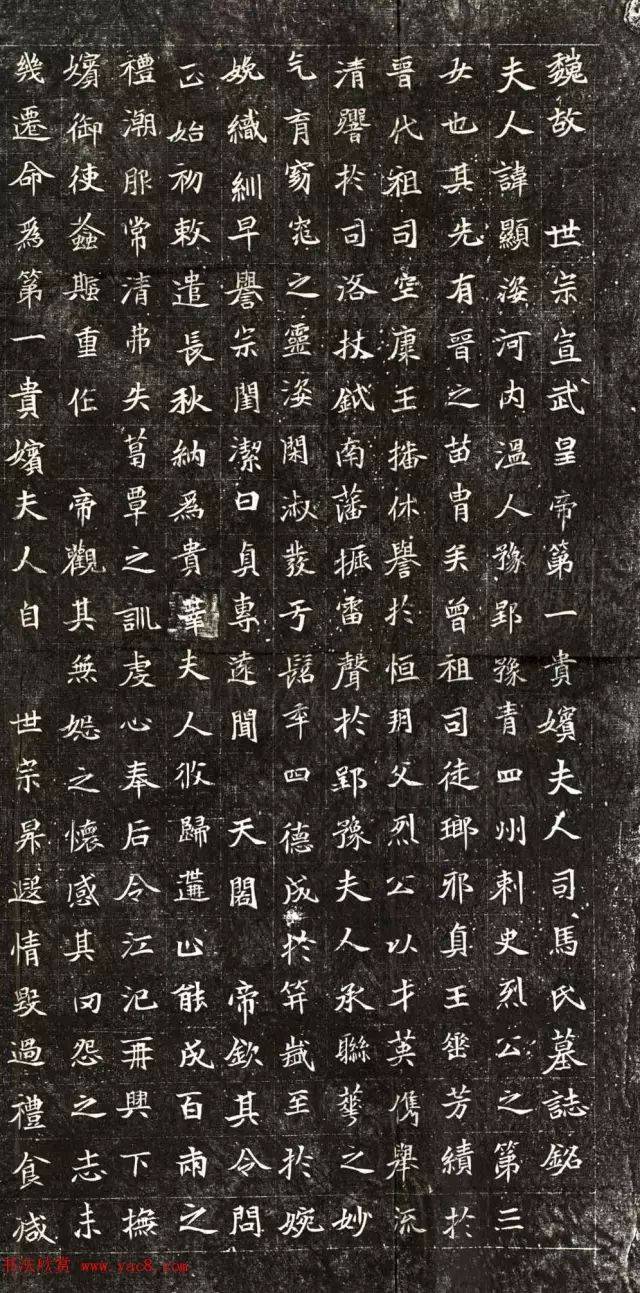 魏故 世宗宣武皇帝第一貴嬪夫人司馬氏墓誌銘
夫人諱顯姿河內溫人豫郢豫青四州刺史烈公之第三
女也其先有晉之苗胄矣曾祖司徒瑯邪貞王垂芳績於
晉代祖司空康王播休譽於恒朔父烈公以才英儁舉流
清響於司洛杖鉞南藩振雷聲於郢豫夫人承聯華之妙
气育窈窕之靈姿閑淑發于髫年四德成於笄歲至於婉
娩織紃早譽宗閨潔白貞專遠聞 天閣 帝欽其令問
正始初敕遣長秋納爲貴華夫人攸歸遘止能成百兩之
禮潮服常清弗失葛覃之訓虔心奉后令江汜再興下撫
嬪御使螽斯重作 帝觀其無妬之懷感其罔怨之志未
幾遷命爲第一貴嬪夫人自 世宗昇遐情毀過禮食減
书法欣赏 www.yac8.com